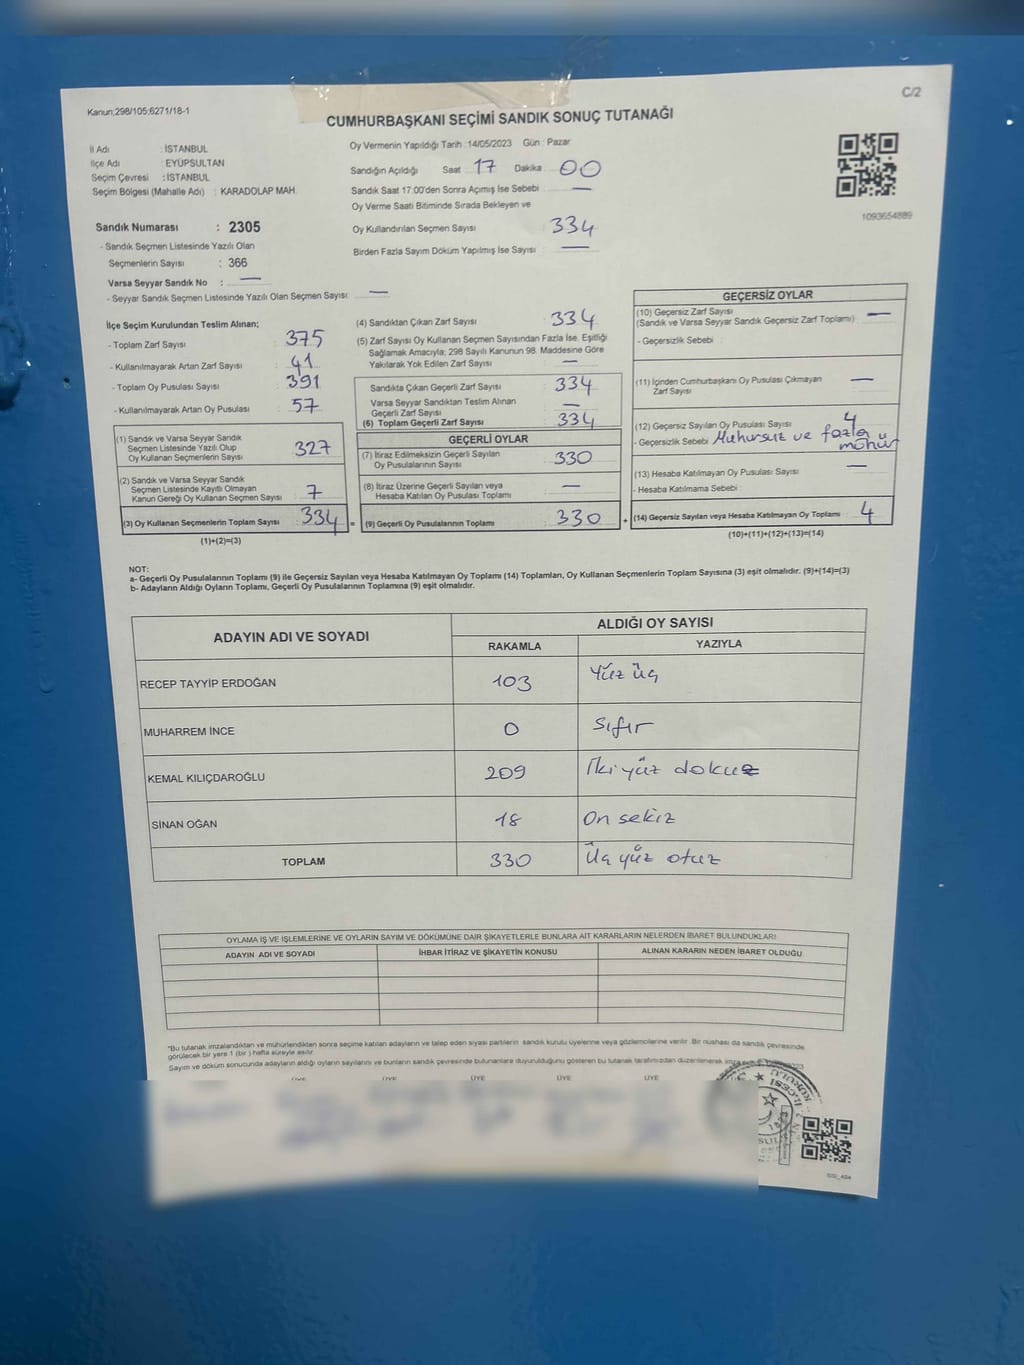 Kanun;298/105;6271/18-1
C/2
CUMHURBAŞKANI SEÇİMİ SANDIK SONUÇ TUTANAĞI
İl Adı : İSTANBUL
İlçe Adı : EYÜPSULTAN
Seçim Çevresi : İSTANBUL
Seçim Bölgesi (Mahalle Adı) : KARADOLAP MAH.
Oy Vermenin Yapıldığı Tarih :14/05/2023 Gün : Pazar
Sandığın Açıldığı Saat 17 Dakika 00
Sandık Saat 17:00'den Sonra Açımış İse Sebebi —
Oy Verme Saati Bitiminde Sırada Bekleyen ve
Oy Kullandırılan Seçmen Sayısı 334
Birden Fazla Sayım Döküm Yapılmış İse Sayısı —
1093654889
Sandık Numarası : 2305
- Sandık Seçmen Listesinde Yazılı Olan
Seçmenlerin Sayısı : 366
Varsa Seyyar Sandık No : —
- Seyyar Sandık Seçmen Listesinde Yazılı Olan Seçmen Sayısı: —
İlçe Seçim Kurulundan Teslim Alınan;
- Toplam Zarf Sayısı 375
- Kullanılmayarak Artan Zarf Sayısı 41
- Toplam Oy Pusulası Sayısı 391
- Kullanılmayarak Artan Oy Pusulası 57
(1) Sandık ve Varsa Seyyar Sandık
Seçmen Listesinde Yazılı Olup
Oy Kullanan Seçmenlerin Sayısı 327
(2) Sandık ve Varsa Seyyar Sandık
Seçmen Listesinde Kayıtlı Olmayan
Kanun Gereği Oy Kullanan Seçmen Sayısı 7
(3) Oy Kullanan Seçmenlerin Toplam Sayısı 334 =
(1)+(2)=(3)
(4) Sandıktan Çıkan Zarf Sayısı 334
(5) Zarf Sayısı Oy Kullanan Seçmen Sayısından Fazla İse, Eşitliği
Sağlamak Amacıyla; 298 Sayılı Kanunun 98. Maddesine Göre
Yakılarak Yok Edilen Zarf Sayısı —
Sandıkta Çıkan Geçerli Zarf Sayısı 334
Varsa Seyyar Sandıktan Teslim Alınan
Geçerli Zarf Sayısı —
(6) Toplam Geçerli Zarf Sayısı 334
GEÇERLİ OYLAR
(7) İtiraz Edilmeksizin Geçerli Sayılan
Oy Pusulalarının Sayısı 330
(8) İtiraz Üzerine Geçerli Sayılan veya
Hesaba Katılan Oy Pusulası Toplamı —
(9) Geçerli Oy Pusulalarının Toplamı 330 +
GEÇERSİZ OYLAR
(10) Geçersiz Zarf Sayısı
(Sandık ve Varsa Seyyar Sandık Geçersiz Zarf Toplamı) —
- Geçersizlik Sebebi :
(11) İçinden Cumhurbaşkanı Oy Pusulası Çıkmayan
Zarf Sayısı —
(12) Geçersiz Sayılan Oy Pusulası Sayısı 4
- Geçersizlik Sebebi Mühürsüz ve fazla
mühür
(13) Hesaba Katılmayan Oy Pusulası Sayısı —
- Hesaba Katılmama Sebebi :
(14) Geçersiz Sayılan veya Hesaba Katılmayan Oy Toplamı 4
(10)+(11)+(12)+(13)=(14)
NOT:
a- Geçerli Oy Pusulalarının Toplamı (9) ile Geçersiz Sayılan veya Hesaba Katılmayan Oy Toplamı (14) Toplamları, Oy Kullanan Seçmenlerin Toplam Sayısına (3) eşit olmalıdır. (9)+(14)=(3)
b- Adayların Aldığı Oyların Toplamı, Geçerli Oy Pusulalarının Toplamına (9) eşit olmalıdır.
ADAYIN ADI VE SOYADI ALDIĞI OY SAYISI
RAKAMLA YAZIYLA
RECEP TAYYİP ERDOĞAN 103 Yüz üç
MUHARREM İNCE 0 Sıfır
KEMAL KILIÇDAROĞLU 209 İki yüz dokuz
SİNAN OĞAN 18 On sekiz
TOPLAM 330 Üç yüz otuz
OYLAMA İŞ VE İŞLEMLERİNE VE OYLARIN SAYIM VE DÖKÜMÜNE DAİR ŞİKAYETLERLE BUNLARA AİT KARARLARIN NELERDEN İBARET BULUNDUKLARI
ADAYIN ADI VE SOYADI İHBAR İTİRAZ VE ŞİKAYETİN KONUSU ALINAN KARARIN NEDEN İBARET OLDUĞU
*Bu tutanak imzalandıktan ve mühürlendikten sonra seçime katılan adayların ve talep eden siyasi partilerin sandık kurulu üyelerine veya gözlemcilerine verilir. Bir nüshası da sandık çevresinde
görülecek bir yere 1 (bir ) hafta süreyle asılır.
Sayım ve döküm sonucunda adayların aldığı oyların sayılarını ve bunların sandık çevresinde bulunanlara duyurulduğunu gösteren bu tutanak tarafımızdan düzenlenerek
ÜYE ÜYE ÜYE ÜYE ÜYE